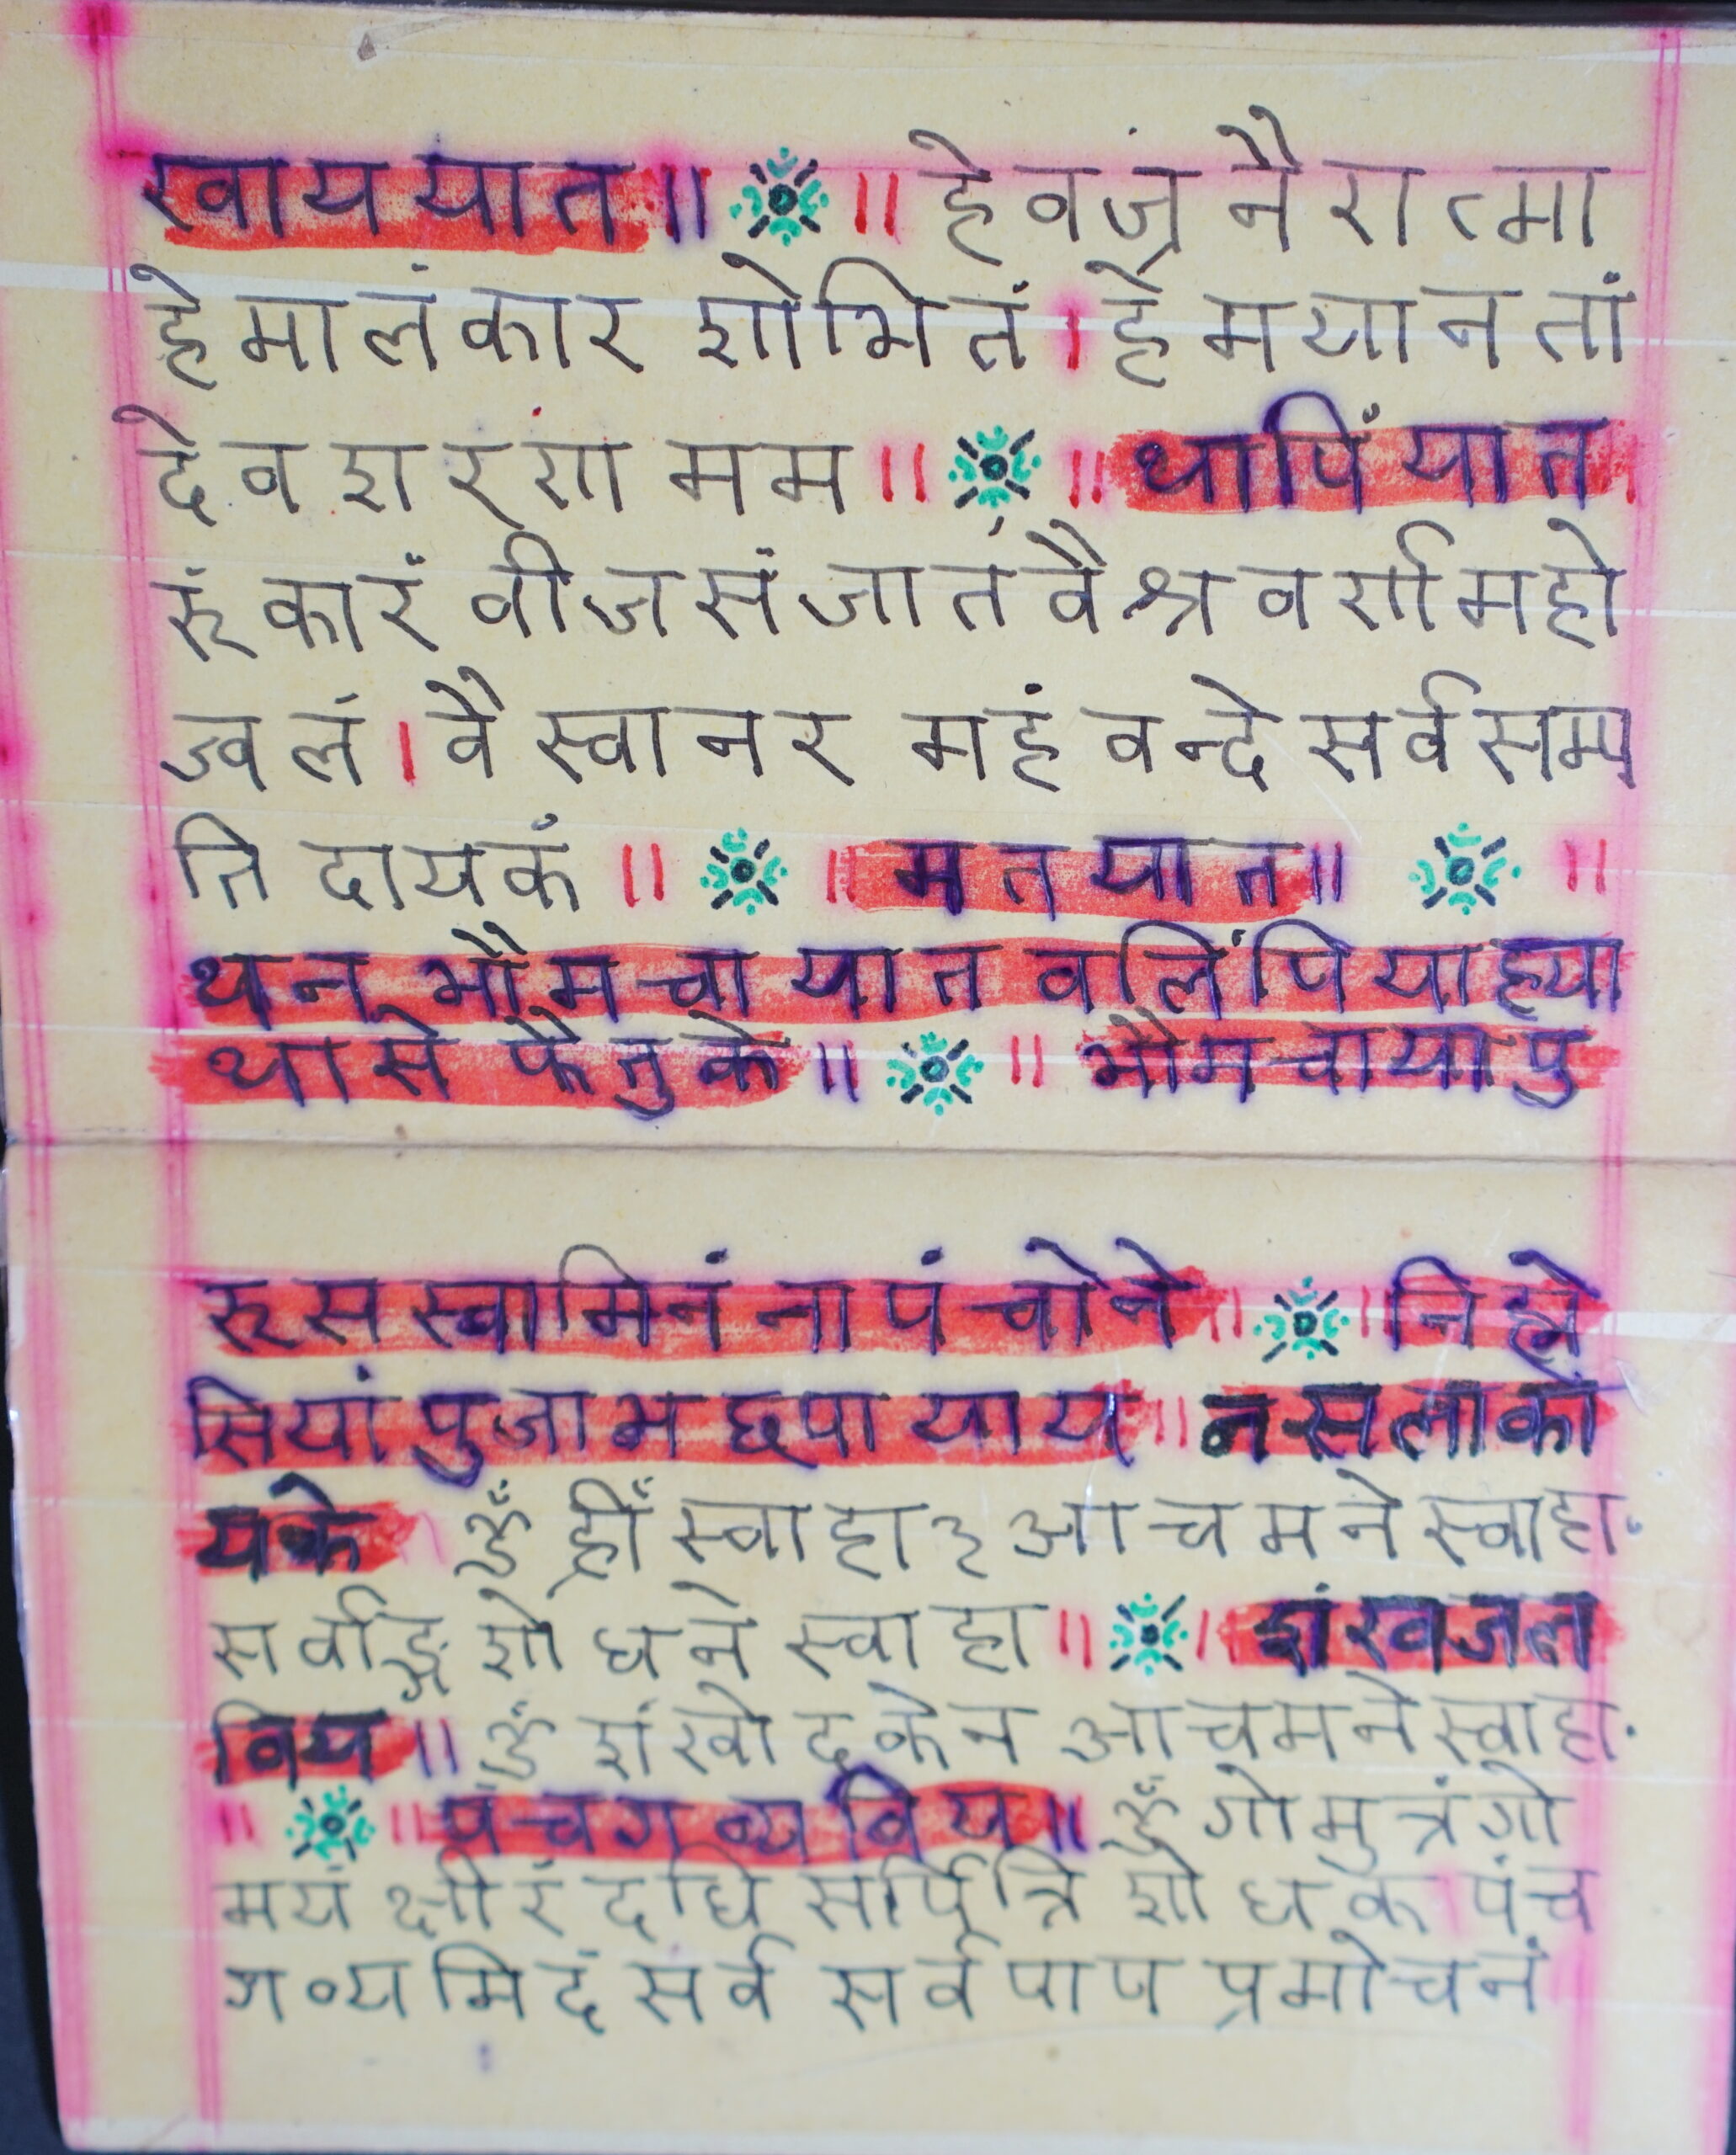 खाय यात॥ ॥ हेवज्र नैरात्मा
हेमालंकार शोभितं। हेमयानतां
देव शरणा मम॥ ॥ थापिंयात
रुंकारं वीजसंजातं वैश्रवर्णामहो
ज्वलं। वैस्वानर महं वन्दे सर्व सम्प
ति दायकं॥ ॥ मतयात॥ ॥
थन भौमचायात वलिंपियाह्या
थासे फैनुके॥ ॥ भौमचायापु
रुसस्वामिनं नापं चोने॥ ॥ निह्मे
सियां पुजाभ छपा याय॥ नसलाका
यके ॐ ह्रीँ स्वाहा ३ आचमने स्वाहा.
सर्वाङ्ग शोधने स्वाहा॥ ॥ शंखजल
विय॥ ॐ शंखोदकेन आचमने स्वाहा.
॥ ॥ पंचगव्य विय॥ ॐ गोमुत्रं गो
मयं क्षीरं दधि सर्पि त्रि शोधकं पंच
गव्यमिदं सर्व सर्वपाप प्रमोचनं